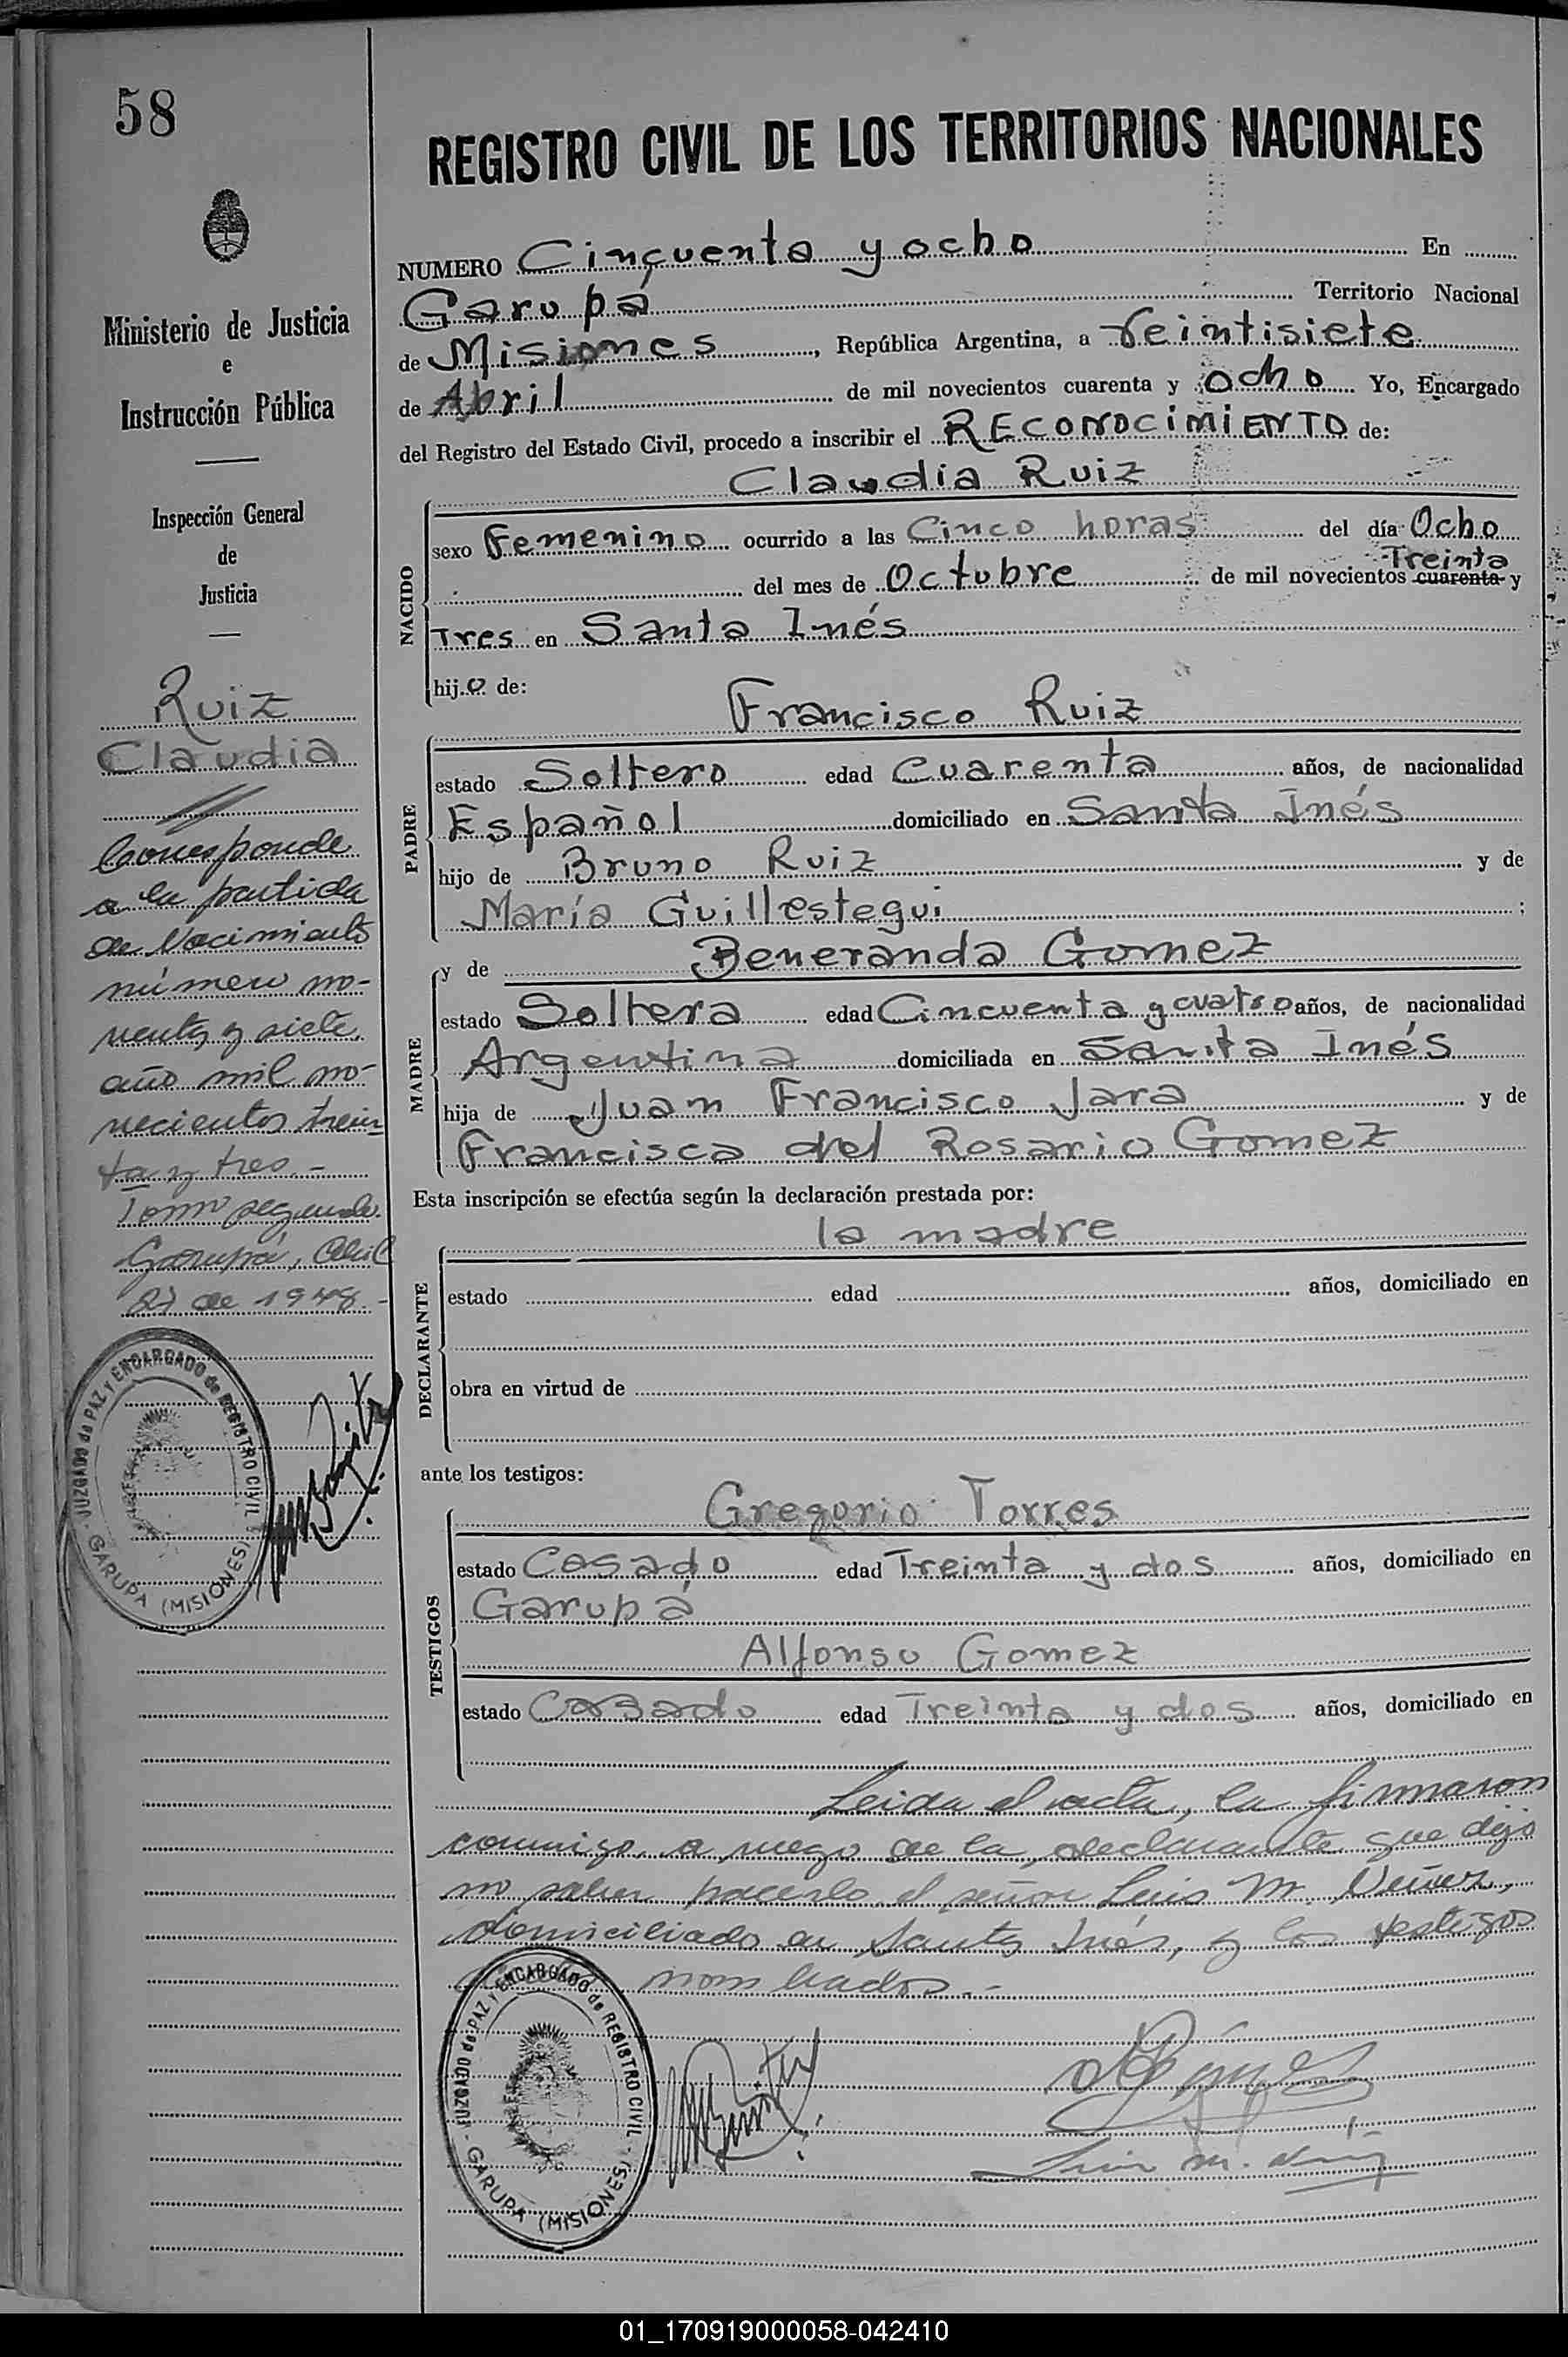 58
Ministerio de Justicia
e
Instrucción Pública
Inspección General
de
Justicia
Ruiz
Claudia
Corresponde
a la partida
de Nacimiento
número no-
venta y siete,
año mil no-
vecientos trein-
ta y tres.-
Tomo segundo.
Garupá, Abril
27 de 1948.-
JUZGADO de PAZ y ENCARGADO de REGISTRO CIVIL
GARUPA (MISIONES)
REGISTRO CIVIL DE LOS TERRITORIOS NACIONALES
NUMERO Cincuenta y ocho En
Garupá Territorio Nacional
de Misiones, República Argentina, a Veintisiete
de Abril de mil novecientos cuarenta y ocho Yo, Encargado
del Registro del Estado Civil, procedo a inscribir el RECONOCIMIENTO de:
Claudia Ruiz
NACIDO
sexo Femenino ocurrido a las Cinco horas del día Ocho
Treinta
del mes de Octubre de mil novecientos cuarenta y
Tres en Santa Inés
hija de:
Francisco Ruiz
PADRE
estado Soltero edad Cuarenta años, de nacionalidad
Español domiciliado en Santa Inés
hijo de Bruno Ruiz y de
María Guillestegui ;
y de Beneranda Gomez
MADRE
estado Soltera edad Cincuenta y cuatro años, de nacionalidad
Argentina domiciliada en Santa Inés
hija de Juan Francisco Jara y de
Francisca del Rosario Gomez
Esta inscripción se efectúa según la declaración prestada por:
la madre
DECLARANTE
estado edad años, domiciliado en
obra en virtud de
ante los testigos:
Gregorio Torres
TESTIGOS
estado Casado edad Treinta y dos años, domiciliado en
Garupá
Alfonso Gomez
estado Casado edad Treinta y dos años, domiciliado en
Leida el acta, la firmaron
conmigo, a ruego de la declarante que dijo
no saber hacerlo el señor Luis M. Nuñez,
domiciliado en Santa Inés, y los testigos
nombrados.-
JUZGADO de PAZ y ENCARGADO de REGISTRO CIVIL
GARUPA (MISIONES)
Luis M.
01_170919000058-042410